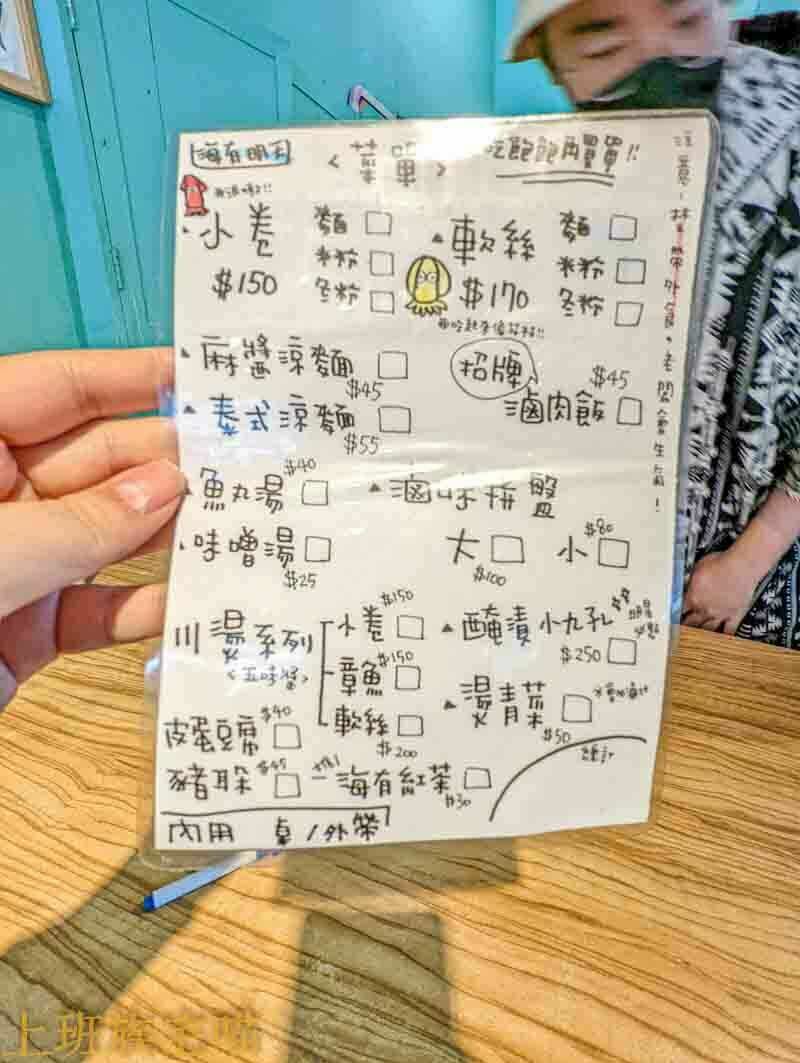 海有明天 <菜單> 吃飽飽再買買!!
注意!禁帶外食。老闆會生氣!
小卷 麵
$150 米粉
冬粉
軟絲 麵
$170 米粉
冬粉
麻醬涼麵 $45
招牌 滷肉飯 $45
泰式涼麵 $55
魚丸湯 $40
滷味拼盤
味噌湯 $25
大 $100 小 $80
川燙系列 小卷 $150
<五味醬> 章魚 $150
軟絲 $200
醃漬小九孔
$250
燙青菜
$50
皮蛋豆腐 $40
總計
豬耳朵 $45
海有紅茶 $30
內用 桌/外帶
上班族